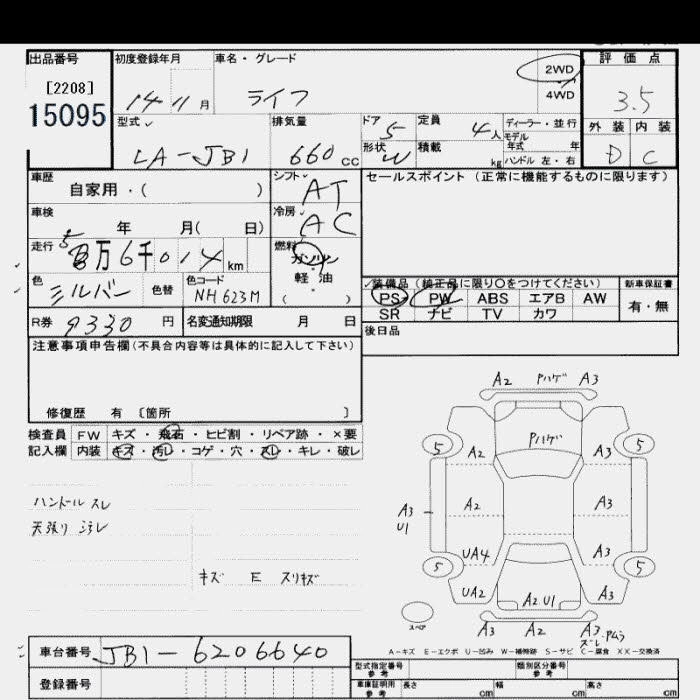 出品番号 初度登録年月 車名・グレード 2WD 4WD 評価点
[2208]
15095
14 11 月 ライフ 3.5
型式 排気量 ドア 定員 ディーラー・並行 外装 内装
5 4人 モデル年式 年
LA-JB1 660 cc 形状 W 積載 kg ハンドル 左・右 D C
車歴 シフト AT セールスポイント (正常に機能するものに限ります)
自家用・( )
車検 冷房 AC
年 月( 日)
走行 万6千014 km 燃料 ガソリン
色 シルバー 色替 色コード NH623M 軽油
( )
装備品 (純正品に限り○をつけてください) 新車保証書
PS PW ABS エアB AW 有・無
SR ナビ TV カワ
R券 9330 円 名変通知期限 月 日 後日品
注意事項申告欄(不具合内容等は具体的に記入して下さい)
修復歴 有 〔箇所 〕
検査員 FW キズ・飛石・ヒビ割・リペア跡・×要
記入欄 内装 キズ・汚レ・コゲ・穴・スレ・キレ・破レ
ハンドル スレ
天張り ヨゴレ
キズ E スリキズ
A2 Pハゲ A3
Pハゲ
5 A2 A3 5
A3 U1 A2 A3
UA4 A3
5 5
UA2 A2.U1 A3
スペア A3 A2 A3
ズレ
A-キズ E-エクボ U-凹み W-補修跡 S-サビ C-腐食 XX-交換済
車台番号 JB1-6206640
登録番号
型式指定番号 参考 類別区分番号 参考
車庫証明用 参考 長さ cm 幅 cm 高さ cm